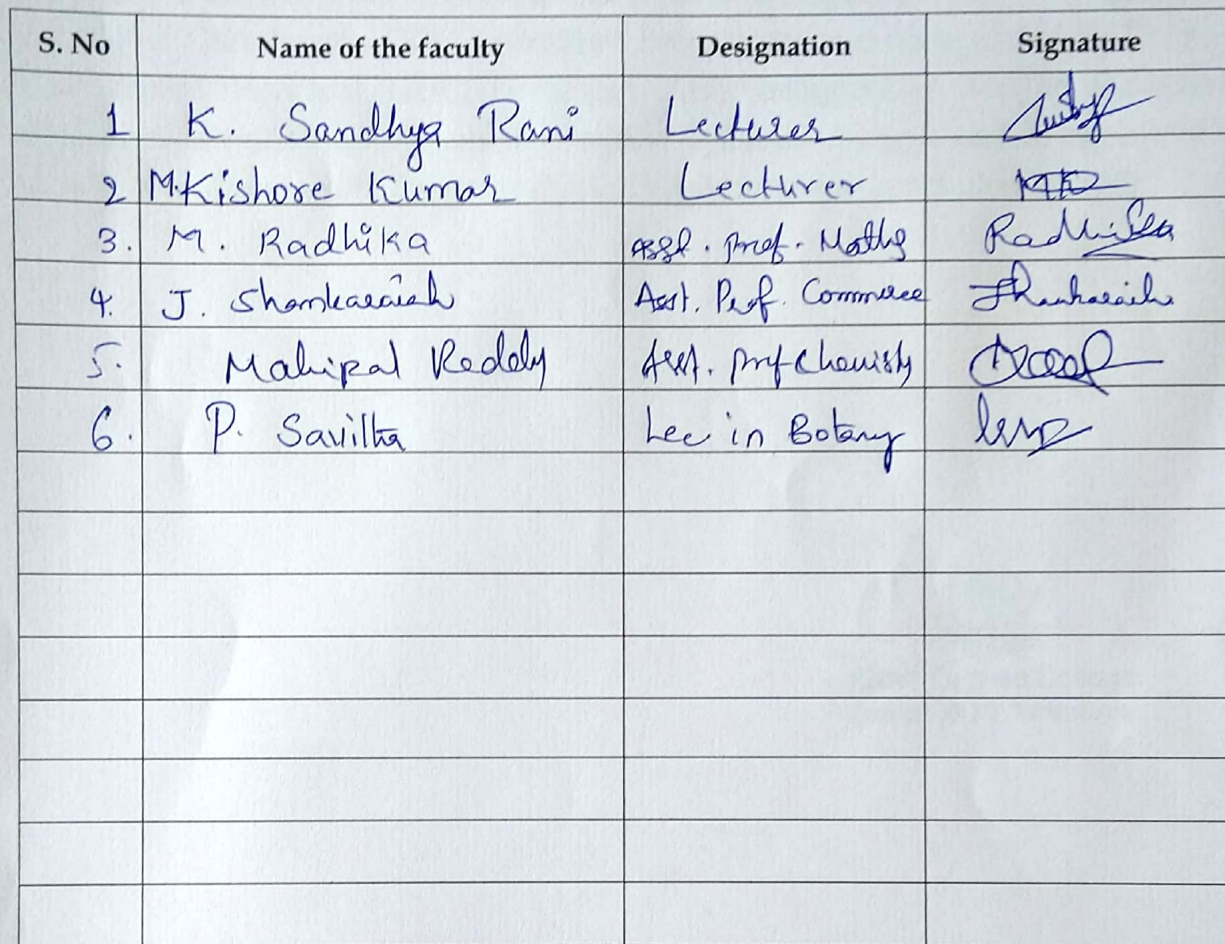 S. No Name of the faculty Designation Signature
1 K. Sandhya Rani Lecturer
2 M.Kishore Kumar Lecturer
3. M. Radhika Asst. Prof. Maths Radhika
4. J. Shankaraiah Asst. Prof. Commerce Shankaraiah
5. Mahipal Reddy Asst. Prof Chemistry
6. P. Savitha Lec in Botany